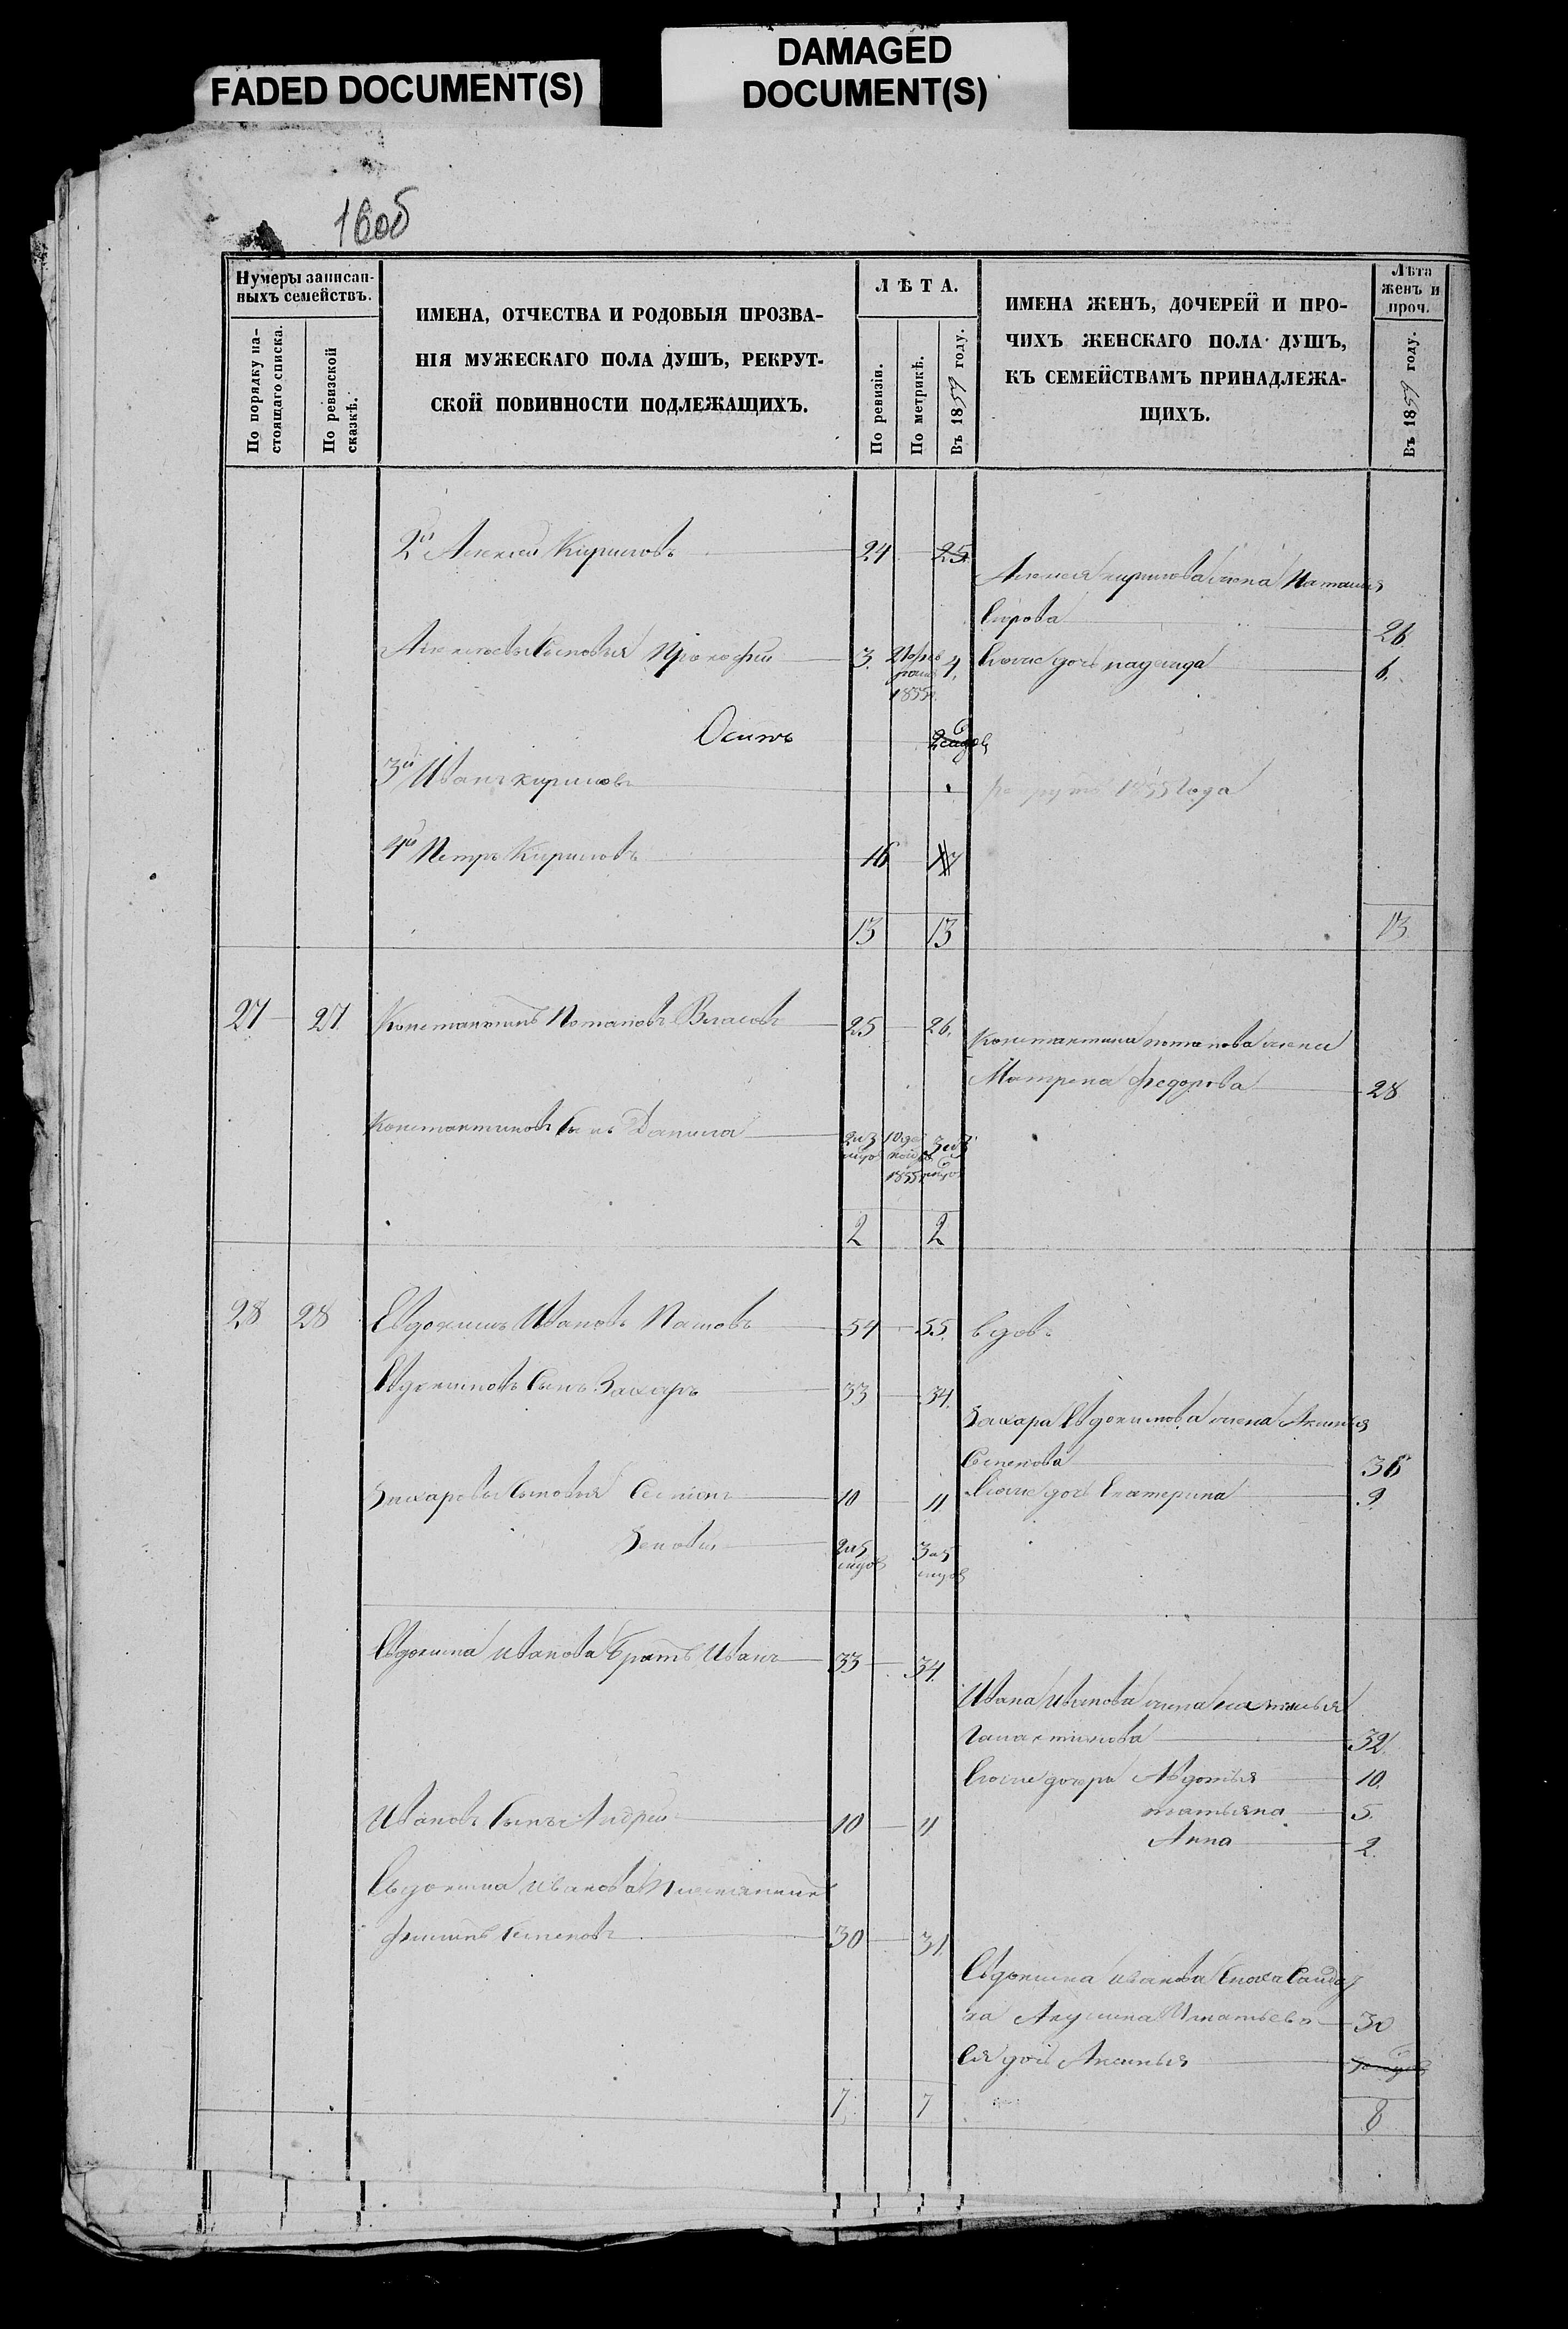 FADED DOCUMENT(S)
DAMAGED
DOCUMENT(S)
16об
Нумеры записан-
ныхъ семействъ.
По порядку на-
стоящаго списка.
По ревизской
сказкѣ.
ИМЕНА, ОТЧЕСТВА И РОДОВЫЯ ПРОЗВА-
НІЯ МУЖЕСКАГО ПОЛА ДУШЪ, РЕКРУТ-
СКОЙ ПОВИННОСТИ ПОДЛЕЖАЩИХЪ.
ЛѢТА.
По ревизіи.
По метрикѣ.
Въ 1859 году.
ИМЕНА ЖЕНЪ, ДОЧЕРЕЙ И ПРО-
ЧИХЪ ЖЕНСКАГО ПОЛА ДУШЪ,
КЪ СЕМЕЙСТВАМЪ ПРИНАДЛЕЖА-
ЩИХЪ.
Лѣта
женъ и
проч.
Въ 1859 году.
2й Алексей Кириловъ 24 25
Алексея кирилова жена Наталья
26
Алексеевы сыновья Прокофий 3. 1855 4. дочь надежда 6.
Осипъ
3й Иванъ кириловъ рекрутъ 1855 года
4й Петръ Кириловъ 16
13 13 13
27 27 Константинъ Потаповъ Власовъ 25 26.
Константина потапова жена
Матрена федорова 28
Константиновъ сынъ Данила 2и3 1855 3и3
2 2
28 28 Евдокимъ Ивановъ 54 55. вдовъ
Евдокимовъ сынъ Захаръ 33 34.
Захара Евдокимова жена Аксинья
Семенова 36
Захаровы сыновья Семионъ 10 11 дочь Екатерина 9
Зеновий 2и5 3и5
Евдокима иванова братъ Иванъ 33 34.
Ивана иванова жена наталья
32.
дочери Авдотья 10.
татьяна 5.
Ивановъ сынъ Андрей 10 11
Анна 2.
Евдокима иванова племянникъ
филипъ семеновъ 30 31.
Евдокима иванова сноха солдат
ка Акулина Игнатьева 30
Ея дочь Аксинья
7 7 8